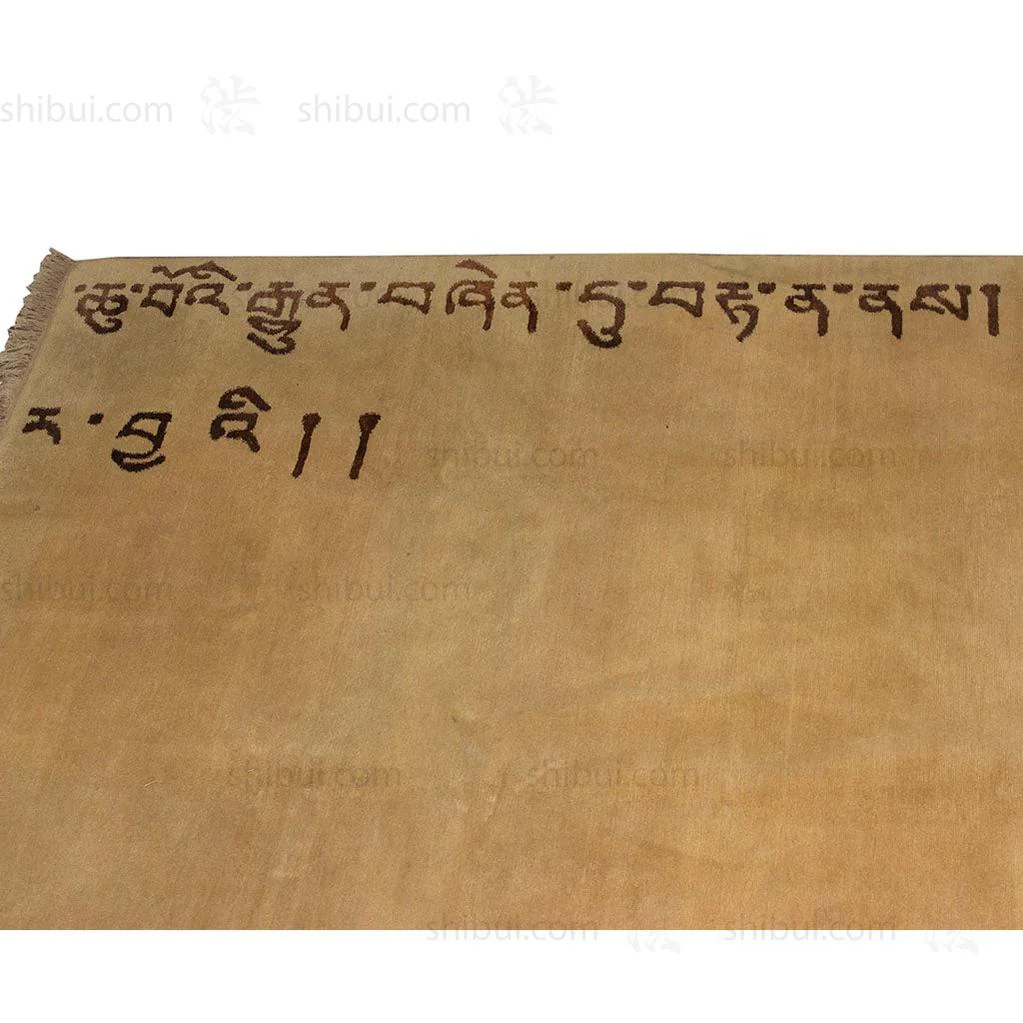 shibui.com shibui.com
་ཆུ་བོའི་རྒྱུན་བཞིན་དུ་བརྟ་ན་ནས།
ར་བྱ འི །།
shibui.com shibui.com
shibui.com shibui.com
shibui.com shibui.com
shibui.com shibui.com